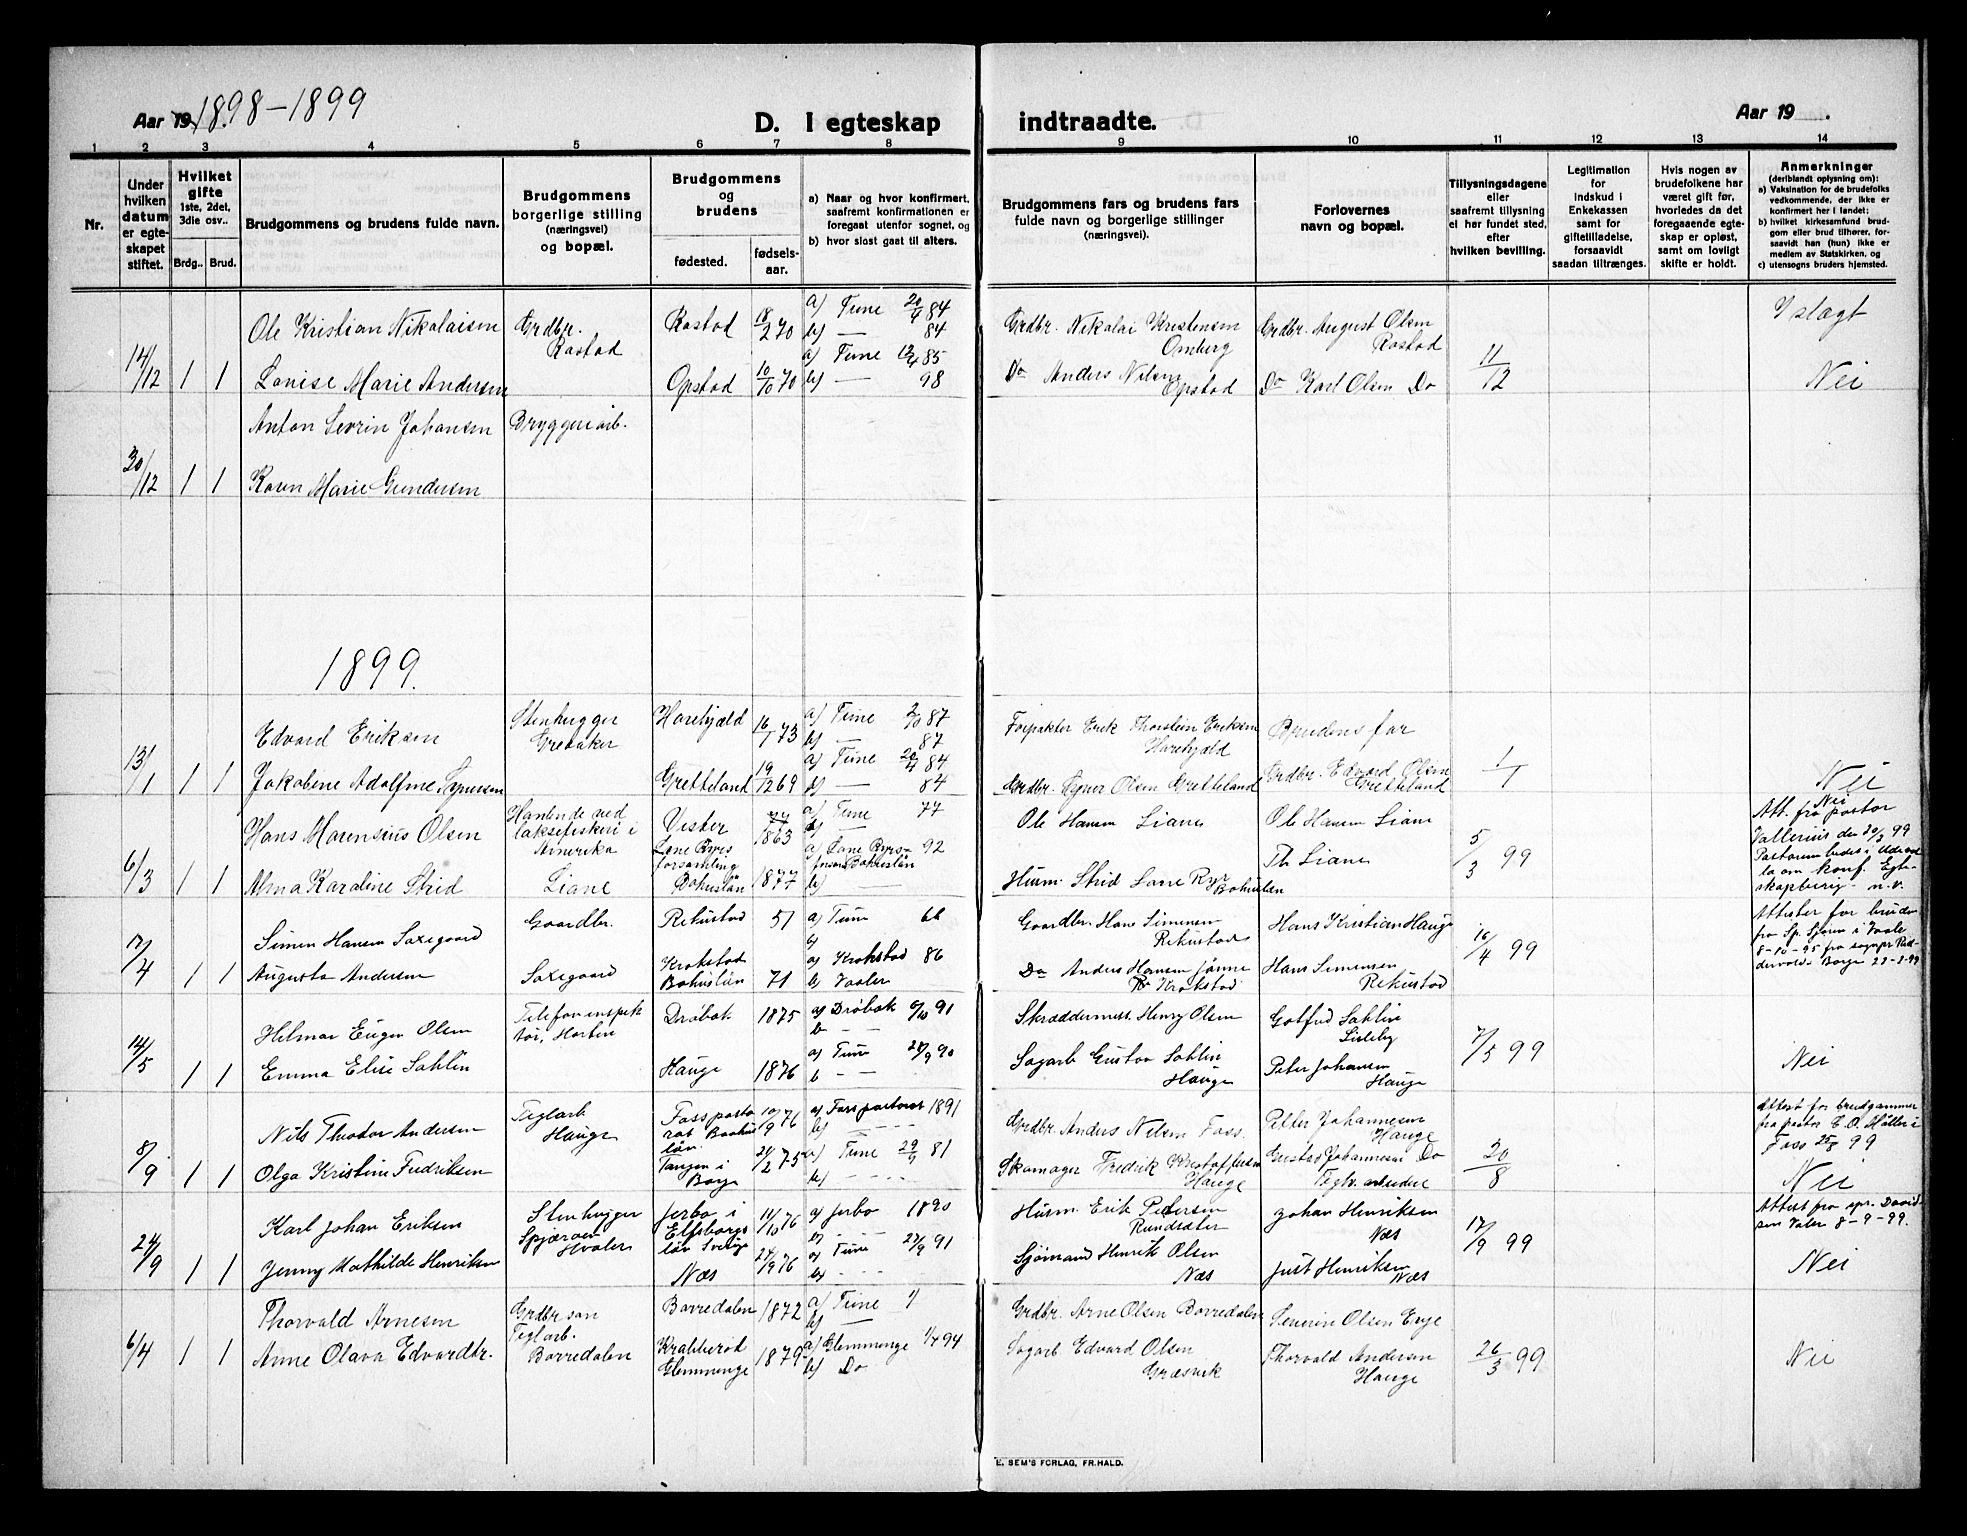 Aar 19 1898-1899
D. I egteskap indtraadte.
Aar 19 .
1 2 3 4 5 6 7 8 9 10 11 12 13 14
Nr.
Under hvilken datum er egteskapet stiftet.
Hvilket gifte 1ste, 2det, 3die osv..
Brdg.. Brud.
Brudgommens og brudens fulde navn.
Brudgommens borgerlige stilling (næringsvei) og bopæl.
Brudgommens og brudens
fødested. fødselsaar.
a) Naar og hvor konfirmert, saafremt konfirmationen er foregaat utenfor sognet, og
b) hvor sidst gaat til alters.
Brudgommens fars og brudens fars fulde navn og borgerlige stillinger (næringsvei).
Forlovernes navn og bopæl.
Tillysningsdagene eller saafremt tillysning ei har fundet sted, efter hvilken bevilling.
Legitimation for indskud i Enkekassen samt for giftetilladelse, forsaavidt saadan tiltrænges.
Hvis nogen av brudefolkene har været gift før, hvorledes da det foregaaende egteskap er opløst, samt om lovligt skifte er holdt.
Anmerkninger (deriblandt oplysning om):
a) Vaksination for de brudefolks vedkommende, der ikke er konfirmert her i landet;
b) hvilket kirkesamfund brudgom eller brud tilhører, forsaavidt han (hun) ikke er medlem av Statskirken, og
c) utensogns bruders hjemsted.
14/12 1 1
Ole Kristian Nikolaisen
Grdbr. Rostad
Rostad 18/2 70
a) Tune 20/4 84
b) — 84
Grdbr. Nikolai Kristensen Omberg
Grdbr. August Olsen Rostad
11/12
I slægt
Lovise Marie Andersen
Opstad 10/10 70
a) Tune 85
b) — 98
Do Anders Nilsen Opstad
Do Karl Olsen Do
Nei
30/12 1 1
Anton Sevrin Johansen
Bryggeriarb.
Karen Marie Gundersen
1899.
13/1 1 1
Edvard Eriksen
Stenhugger Greaaker
Harehjæld 16/1 73
a) Tune 2/10 87
b) — 87
Forpakter Erik Thorstein Eriksen Harehjæld
Brudens far
1/1
Jakobene Adolfine Synersen
Gretteland 19/12 69
a) Tune 20/4 84
b) — 84
Grdbr. Syner Olsen Gretteland
Grdbr. Edvard Olsen Gretteland
Nei
6/3 1 1
Hans Marensius Olsen
Hantende ved laksefiskeri i Amerika
Vester 1863
a) Tune 77
Ole Hansen Liane
Ole Hansen Liane
5/3 99
Nei
Att. fra pastor Vallerius den 20/2 99
Alma Karoline Strid
Liane
Lane Ryrs forsamling Bohuslän 1877
a) Lane Ryrs forsam Bohuslän 92
b) —
Husm. Strid Lane Ryr Bohuslen
Th Liane
17/4 1 1
Simen Hansen Saxegaard
Gaardbr.
Rekustad 51
a) Tune 66
Gaardbr. Hans Simensen Rekustad
Hans Kristian Hauge
16/4 99
Attester for bruden fra Sp. Sjørum i Vaale 8-10-95
Augusta Andersen
Saxegaard
Krokstad Bohuslän 71
a) Krokstad 86
b) Vaaler
Do Anders Hansen Jønne Krokstad
Hans Simensen Rekustad
14/5 1 1
Hilmar Eugen Olsen
Telefoninspektør, Horten
Drøbak 1875
a) Drøbak 6/10 91
b — -
Skræddermest. Henry Olsen
Gotfred Sahlin Lisleby
7/5 99
Emma Elise Sahlin
Hauge 1876
a) Tune 28/9 90
b — -
Sagarb Gustav Sahlin Hauge
Peter Johansen Hauge
Nei
8/9 1 1
Nils Theodor Andersen
Teglarb Hauge
Foss pastorat Boohuslän 10/9 76
a) Foss pastorat 1891
b) - - - -
Grdbr. Anders Nilsen Foss.
Petter Johannesen Hauge
20/8
Attest for brudgommen fra pastor E. O. Håller i Foss 25/8 99
Olga Kristine Fredriksen
Tangen i Borge 21/2 75
a) Tune 29/9 81
b) - - - -
Skomager Fredrik Kristoffersen Hauge
Gustav Johannesen Do Teglv. arbeider
Nei
24/9 1 1
Karl Johan Eriksen
Stenhugger Spjæraen Hvaler
Jerbo i Elfsborgs län Sverige 11/10 76
a) Jerbo 1890
b) - - -
Husm. Erik Petersen Rundsæter
Johan Henriksen Næs
17/9 99
Attest fra spr. Davidsen Valer 8-9-99.
Jenny Mathilde Henriksen
Næs 27/9 76
a) Tune 27/9 91
b) - - -
Sjømand Henrik Olsen Næs
Just Henriksen Næs
Nei
6/4 1 1
Thorvald Arnesen
Grdbr søn Teglarb. Borredalen
Borredalen 1872
a) Tune
b) —
Grdbr. Arne Olsen Borredalen
Severin Olsen Enge
26/3 99
Anne Olava Edvardtr.
Krabberød Glemminge 1879
a) Glemminge 94
b) Do
Sagarb Edvard Olsen Græsvik
Thorvald Andersen Hauge
Nei
E. SEM'S FORLAG, FR.HALD.